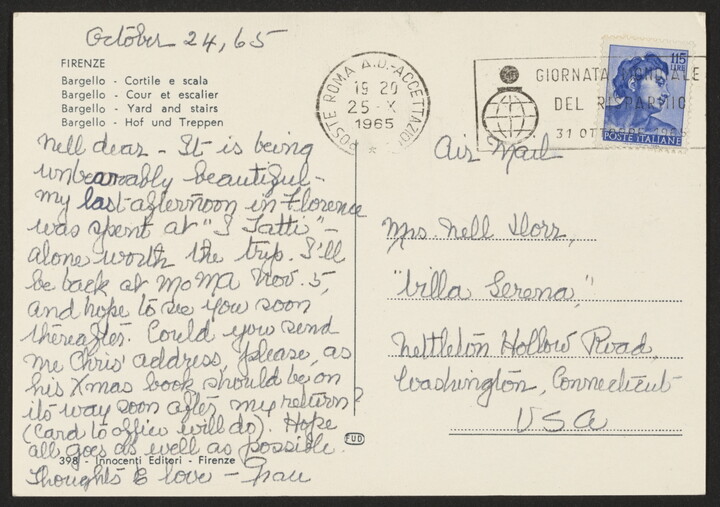 October 24, 65
FIRENZE
Bargello - Cortile e scala
Bargello - Cour et escalier
Bargello - Yard and stairs
Bargello - Hof und Treppen
Nell dear - It is being
unbearably beautiful -
my last afternoon in Florence
was spent at "I Tatti" -
alone worth the trip. I'll
be back at MoMA Nov. 5,
and hope to see you soon
thereafter. Could you send
me Chris' address, please, as
his Xmas book should be on
its way soon after my return?
(Card to office will do). Hope
all goes as well as possible.
Thoughts & love -
398 - Innocenti Editori - Firenze
FUD
POSTE ROMA A.D.-ACCETTAZIO
19 20
25 - X
1965
GIORNATA MONDIALE
DEL RISPARMIO
31 OTTOBRE 1965
115
LIRE
POSTE ITALIANE
Air Mail
Mrs. Nell Dorr,
"Villa Serena,"
Nettleton Hollow Road,
Washington, Connecticut
USA